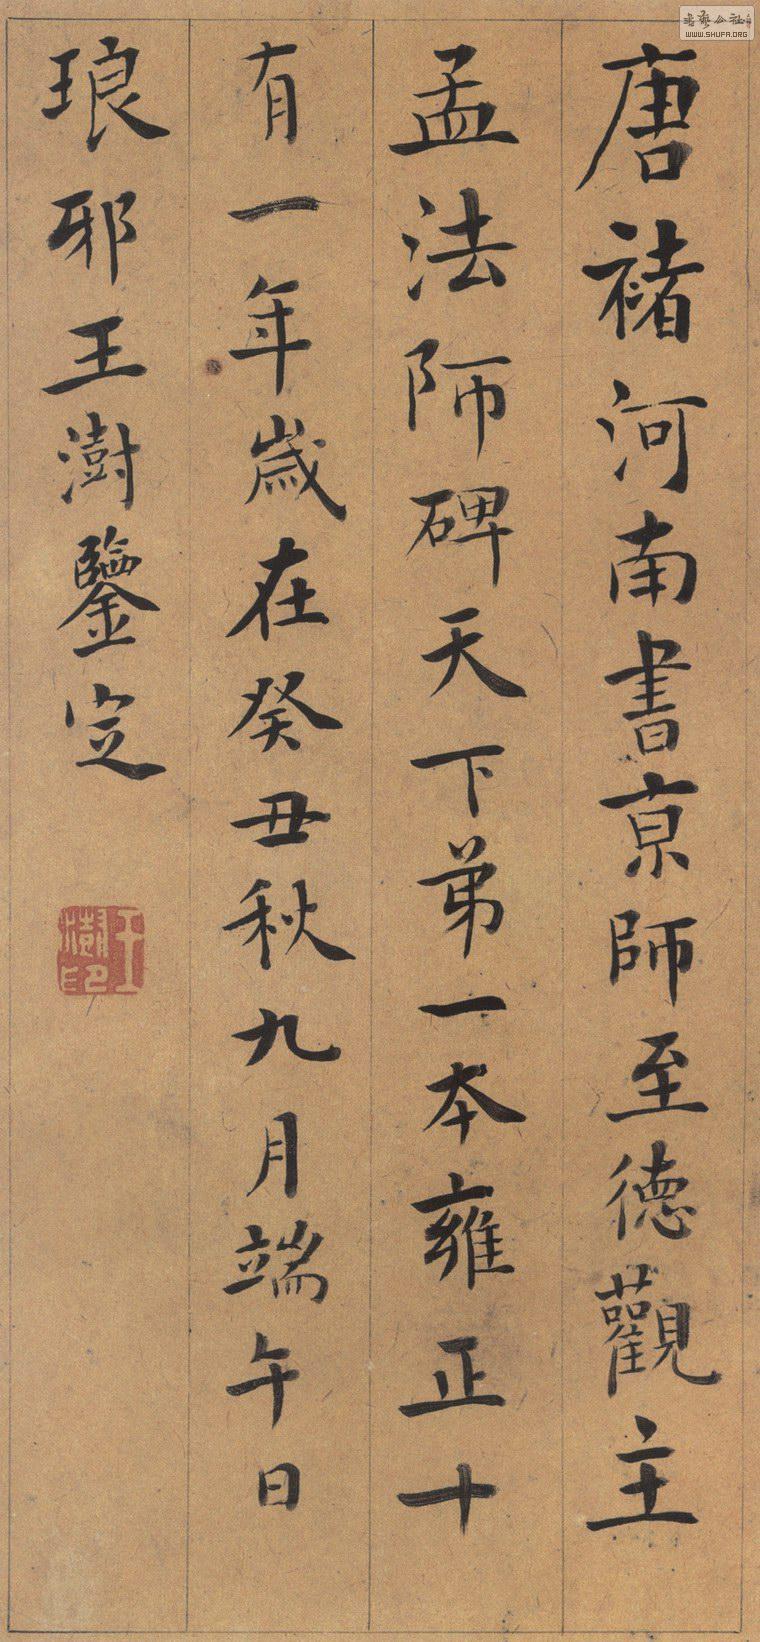 唐褚河南書京師至德觀主
孟法師碑天下弟一本雍正十
有一年歲在癸丑秋九月端午日
琅邪王澍鑒定
王澍印
書藝公社
WWW.SHUFA.ORG